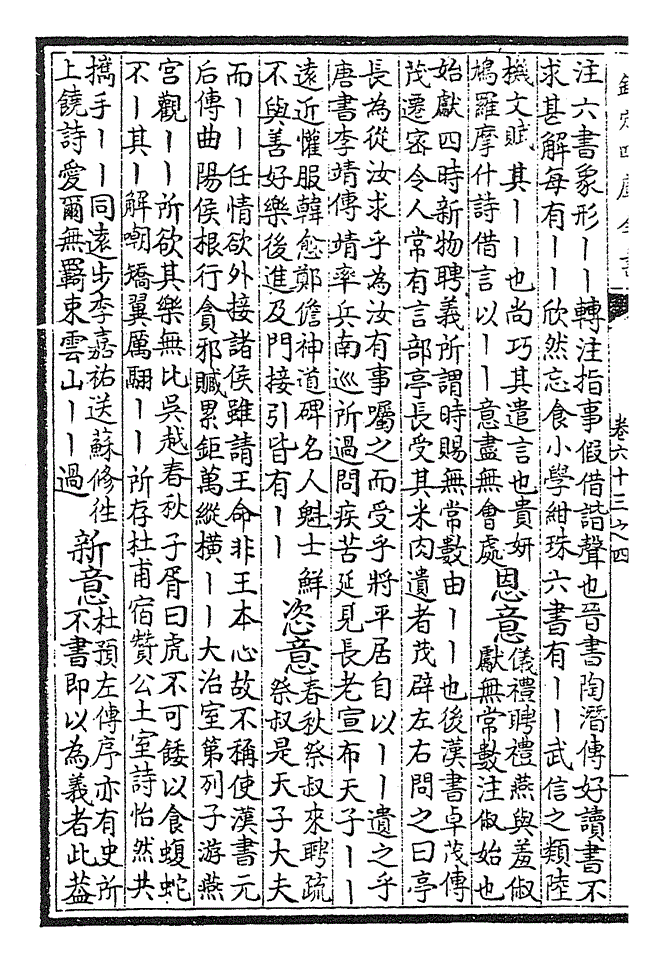 欽定四庫全書
卷六十三之四
注六書象形丨丨轉注指事假借諧聲也晉書陶潛傳好讀書不
求甚解每有丨丨欣然忘食小學紺珠六書有丨丨武信之類陸
機文賦其丨丨也尚巧其遣言也貴妍
鳩羅摩什詩借言以丨丨意盡無會處
恩意
儀禮聘禮燕與羞俶
獻無常數注俶始也
始獻四時新物聘義所謂時賜無常數由丨丨也後漢書卓茂傳
茂遷密令人常有言部亭長受其米肉遺者茂辟左右問之曰亭
長為從汝求乎為汝有事囑之而受乎將平居自以丨丨遺之乎
唐書李靖傳靖率兵南巡所過問疾苦延見長老宣布天子丨丨
遠近懽服韓愈鄭儋神道碑名人魁士鮮
不與善好樂後進及門接引皆有丨丨
恣意
春秋祭叔來聘疏
祭叔是天子大夫
而丨丨任情欲外接諸侯雖請王命非王本心故不稱使漢書元
后傳曲陽侯根行貪邪贓累鉅萬縱橫丨丨大治室第列子游燕
宮觀丨丨所欲其樂無比吳越春秋子胥曰虎不可餧以食蝮蛇
不丨其丨解嘲矯翼厲翮丨丨所存杜甫宿贊公土室詩怡然共
攜手丨丨同遠步李嘉祐送蘇修往
上饒詩愛爾無羈束雲山丨丨過
新意
杜預左傳序亦有史所
不書即以為義者此葢